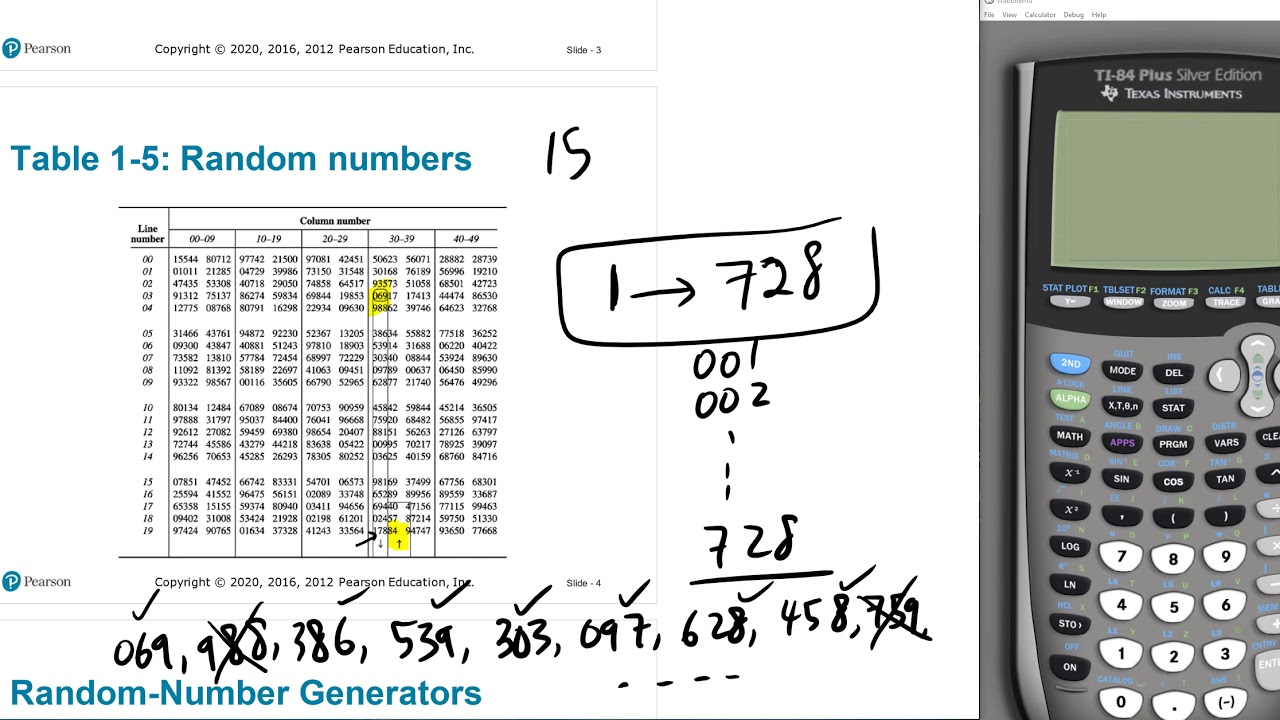 Wabbitemu
File View Calculator Debug Help
Pearson Copyright © 2020, 2016, 2012 Pearson Education, Inc. Slide - 3
Table 1-5: Random numbers
15
Line number
Column number
00–09 10–19 20–29 30–39 40–49
00 15544 80712 97742 21500 97081 42451 50623 56071 28882 28739
01 01011 21285 04729 39986 73150 31548 30168 76189 56996 19210
02 47435 53308 40718 29050 74858 64517 93573 51058 68501 42723
03 91312 75137 86274 59834 69844 19853 06917 17413 44474 86530
04 12775 08768 80791 16298 22934 09630 98862 39746 64623 32768
05 31466 43761 94872 92230 52367 13205 38634 55882 77518 36252
06 09300 43847 40881 51243 97810 18903 53914 31688 06220 40422
07 73582 13810 57784 72454 68997 72229 30340 08844 53924 89630
08 11092 81392 58189 22697 41063 09451 09789 00637 06450 85990
09 93322 98567 00116 35605 66790 52965 62877 21740 56476 49296
10 80134 12484 67089 08674 70753 90959 45842 59844 45214 36505
11 97888 31797 95037 84400 76041 96668 75920 68482 56855 97417
12 92612 27082 59459 69380 98654 20407 88151 56263 27126 63797
13 72744 45586 43279 44218 83638 05422 00995 70217 78925 39097
14 96256 70653 45285 26293 78305 80252 03625 40159 68760 84716
15 07851 47452 66742 83331 54701 06573 98169 37499 67756 68301
16 25594 41552 96475 56151 02089 33748 65289 89956 89559 33687
17 65358 15155 59374 80940 03411 94656 69440 47156 77115 99463
18 09402 31008 53424 21928 02198 61201 02457 87214 59750 51330
19 97424 90765 01634 37328 41243 33564 17884 94747 93650 77668
↓ ↑
1 → 728
001
002
728
Pearson Copyright © 2020, 2016, 2012 Pearson Education, Inc. Slide - 4
069, 988, 386, 539, 303, 097, 628, 458, 759,
Random-Number Generators
TI-84 Plus Silver Edition
TEXAS INSTRUMENTS
STAT PLOT F1 TBLSET F2 FORMAT F3 CALC F4
Y= WINDOW ZOOM TRACE
QUIT INS
2ND MODE DEL
A-LOCK LINK LIST
ALPHA X,T,θ,n STAT
TEST A ANGLE B DRAW C DISTR
MATH APPS PRGM VARS
MATRIX D SIN⁻¹ E COS⁻¹ F TAN⁻¹ G
X⁻¹ SIN COS TAN
X² , ( )
LOG 7 8 9
LN 4 5 6
RCL X L1 Y L2 Z L3
STO› 1 2 3
OFF CATALOG ANS ?
ON 0 . (-)